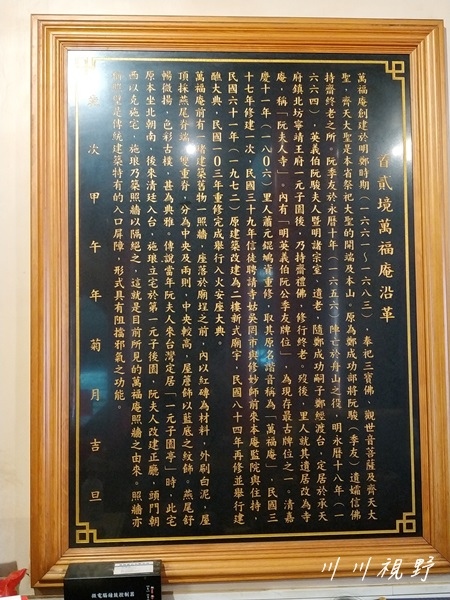 首貳境萬福庵沿革
萬福庵創建於明鄭時期（一六六一～一六八三），奉祀三寶佛、觀世音菩薩及齊天大
聖，齊天大聖是本省祭祀大聖的開端及本山，原為鄭成功部將阮駿（季友）遺孀信佛
持齋終老之所。阮季友於永曆十年（一六五六）陣亡於舟山之役，明永曆十八年（一
六六四），英義伯阮駿夫人暨明諸宗室、遺老，隨鄭成功嗣子鄭經渡台，定居於承天
府鎮北坊寧靖王府一元子園後，乃持齋禮佛，修行終老。歿後，里人就其遺居改為寺
庵，稱「阮夫人寺」。內有「明英義伯阮公季友牌位」，為現存最古牌位之一。清嘉
慶十一年（一八0六）里人蕭元錕鳩資重修，取其原名諧音稱為「萬福庵」，民國三
十七年修建一次，民國三十九年信徒聘請寺姑吳罔市與修妙師前來本庵監院與住持，
民國六十一年（一九七二）原建築改建為二樓新式廟宇，民國八十四年再修並舉行建
醮大典，民國一0三年重修完成舉行入火安座大典。
萬福庵前有一堵建築舊物－照牆，座落於廟埕之前，內以紅磚為材料，外刷白泥，屋
頂採燕尾脊端雙重脊，分為中央及兩側，中央較高，屋簷飾以藍底之紋飾。燕尾舒
暢微揚，色彩古樸，甚為典雅。傳說當年阮夫人來台灣定居「一元子園亭」時，此宅
原本坐北朝南，後來清廷入台，施琅立宅於第一元子後園，阮夫人改建正廳，頭門朝
西以克施宅，施琅乃築照牆以隔絕之，這就是目前所見的萬福庵照牆之由來。照牆亦
稱照壁是傳統建築特有的入口屏障，形式具有阻擋邪氣之功能。
歲次甲午年菊月吉旦
川川視野